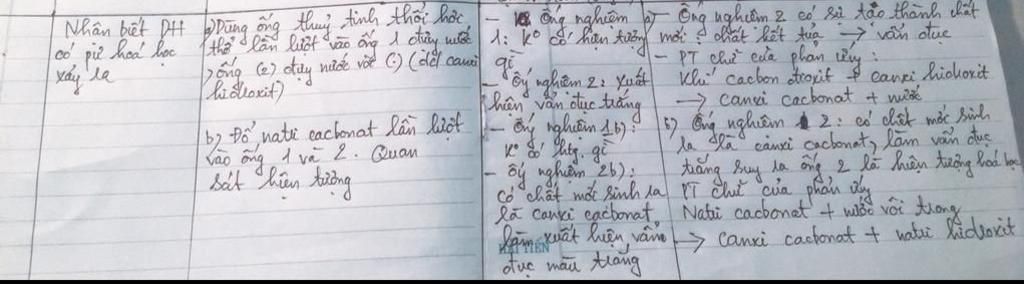 Nhân biết DH
có pứ hoá học
xảy ra
a) Dùng ống thuỷ tinh thổi hơi
thở lần lượt vào ống 1 đựng nước
, ống (2) đựng nước vôi (dd canxi
hiđroxit)
b) Đổ natri cacbonat lần lượt
vào ống 1 và 2. Quan
sát hiện tượng
- Ống nghiệm
1: K° có hiện tượng
gì
- Ống nghiệm 2: Xuất
hiện vẩn đục trắng
- Ống nghiệm 1b):
K° có htg. gì
- Ống nghiệm 2b):
Có chất mới sinh ra
là canxi cacbonat,
làm xuất hiện vẩn
đục màu trắng
HẢI TIẾN
a) - Ống nghiệm 2 có sự tạo thành chất
mới: chất kết tủa → vẩn đục
- PT chữ của phản ứng:
Khí cacbon đioxit + canxi hiđroxit
→ canxi cacbonat + nước
b) Ống nghiệm 2: có chất mới sinh
ra là canxi cacbonat, làm vẩn đục
trắng suy ra ống 2 là hiện tượng hoá học
PT chữ của phản ứng
Natri cacbonat + nước vôi trong
→ canxi cacbonat + natri hiđroxit